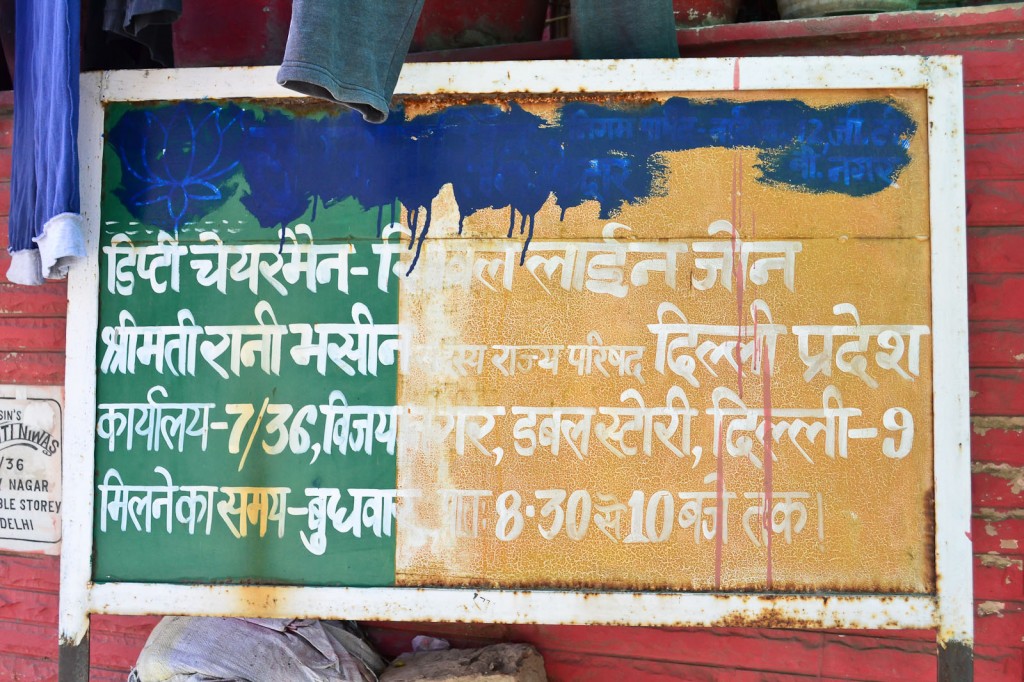 डिप्टी चेयरमैन- सिविल लाईन जोन
श्रीमती रानी भसीन सदस्य राज्य परिषद् दिल्ली प्रदेश
कार्यालय-7/36, विजय नगर, डबल स्टोरी, दिल्ली-9
मिलने का समय-बुधवार प्रातः 8.30 से 10 बजे तक।
SIN'S
TI NIWAS
/36
NAGAR
BLE STOREY
DELHI